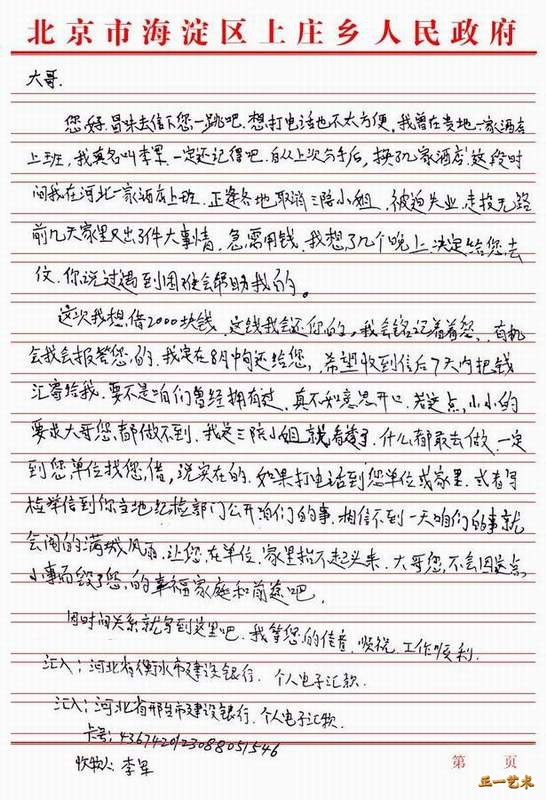 北京市海淀区上庄乡人民政府
大哥.
您好.冒昧去信下您一跳吧.想打电话也不太方便,我曾在贵地一家酒店
上班,我真名叫李军.一定还记得吧.自从上次分手后,换了几家酒店.这段时
间我在河北一家酒店上班.正逢各地取消三陪小姐.被迫失业,走投无路
前几天家里又出了件大事情,急需用钱.我想了几个晚上.决定给您去
信.你说过遇到困难会帮助我的。
这次我想借2000块钱.这钱我会还你的,我会铭记着着您.有机
会我会报答您的.我定在8月中旬还给您,希望收到信后7天内把钱
汇寄给我.要不是咱们曾经拥有过.真不好意思开口.若这点,小小的
要求大哥您都做不到.我这三陪小姐就看着了.什么都敢去做.一定
到您单位找您借,说实在的.如果打电话到您单位或家里.或者写
检举信到你当地纪检部门公开咱们的事.相信不到一天咱们的事就
会闹的满城风雨.让您在单位.家里抬不起头来.大哥您不会因这点
小事而毁了您的幸福家庭和前途吧.
因时间关系就写到这里吧.我等您的佳音.顺祝.工作顺利.
汇入:河北省衡水市建设银行.个人电子汇款.
汇入:河北省邢台市建设银行.个人电子汇款.
卡号:4367420123088051546
收款人 李军
第 页
正一艺术